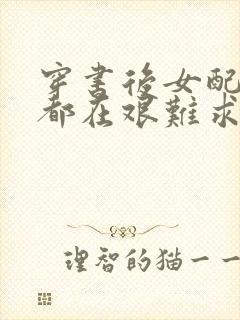 穿書後女配
都在艱難求
理智的猫一一